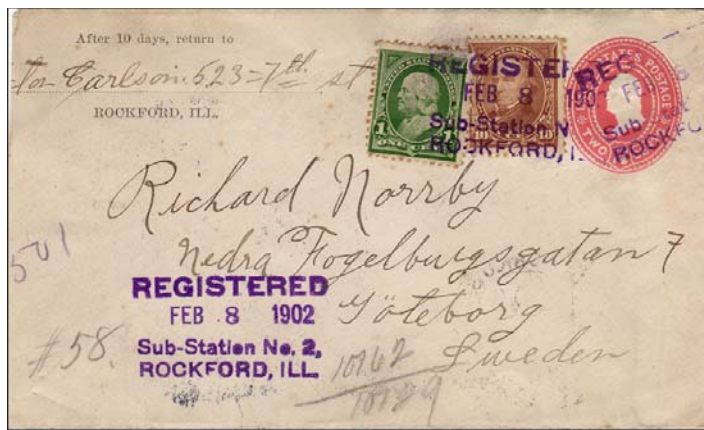 After 10 days, return to
Carlson. 523 = 7th st
ROCKFORD, ILL.
1 1
ONE
10 10
REGISTER
FEB 8 190
Sub-Station N
ROCKFORD, I
REG
FEB 8
Sub
ROCKFO
STATES POSTAGE
TWO
Richard Norrby
Nedra Fogelburgsgatan 7
Göteborg
Sweden
501
REGISTERED
FEB 8 1902
Sub-Station No. 2,
ROCKFORD, ILL.
#58.